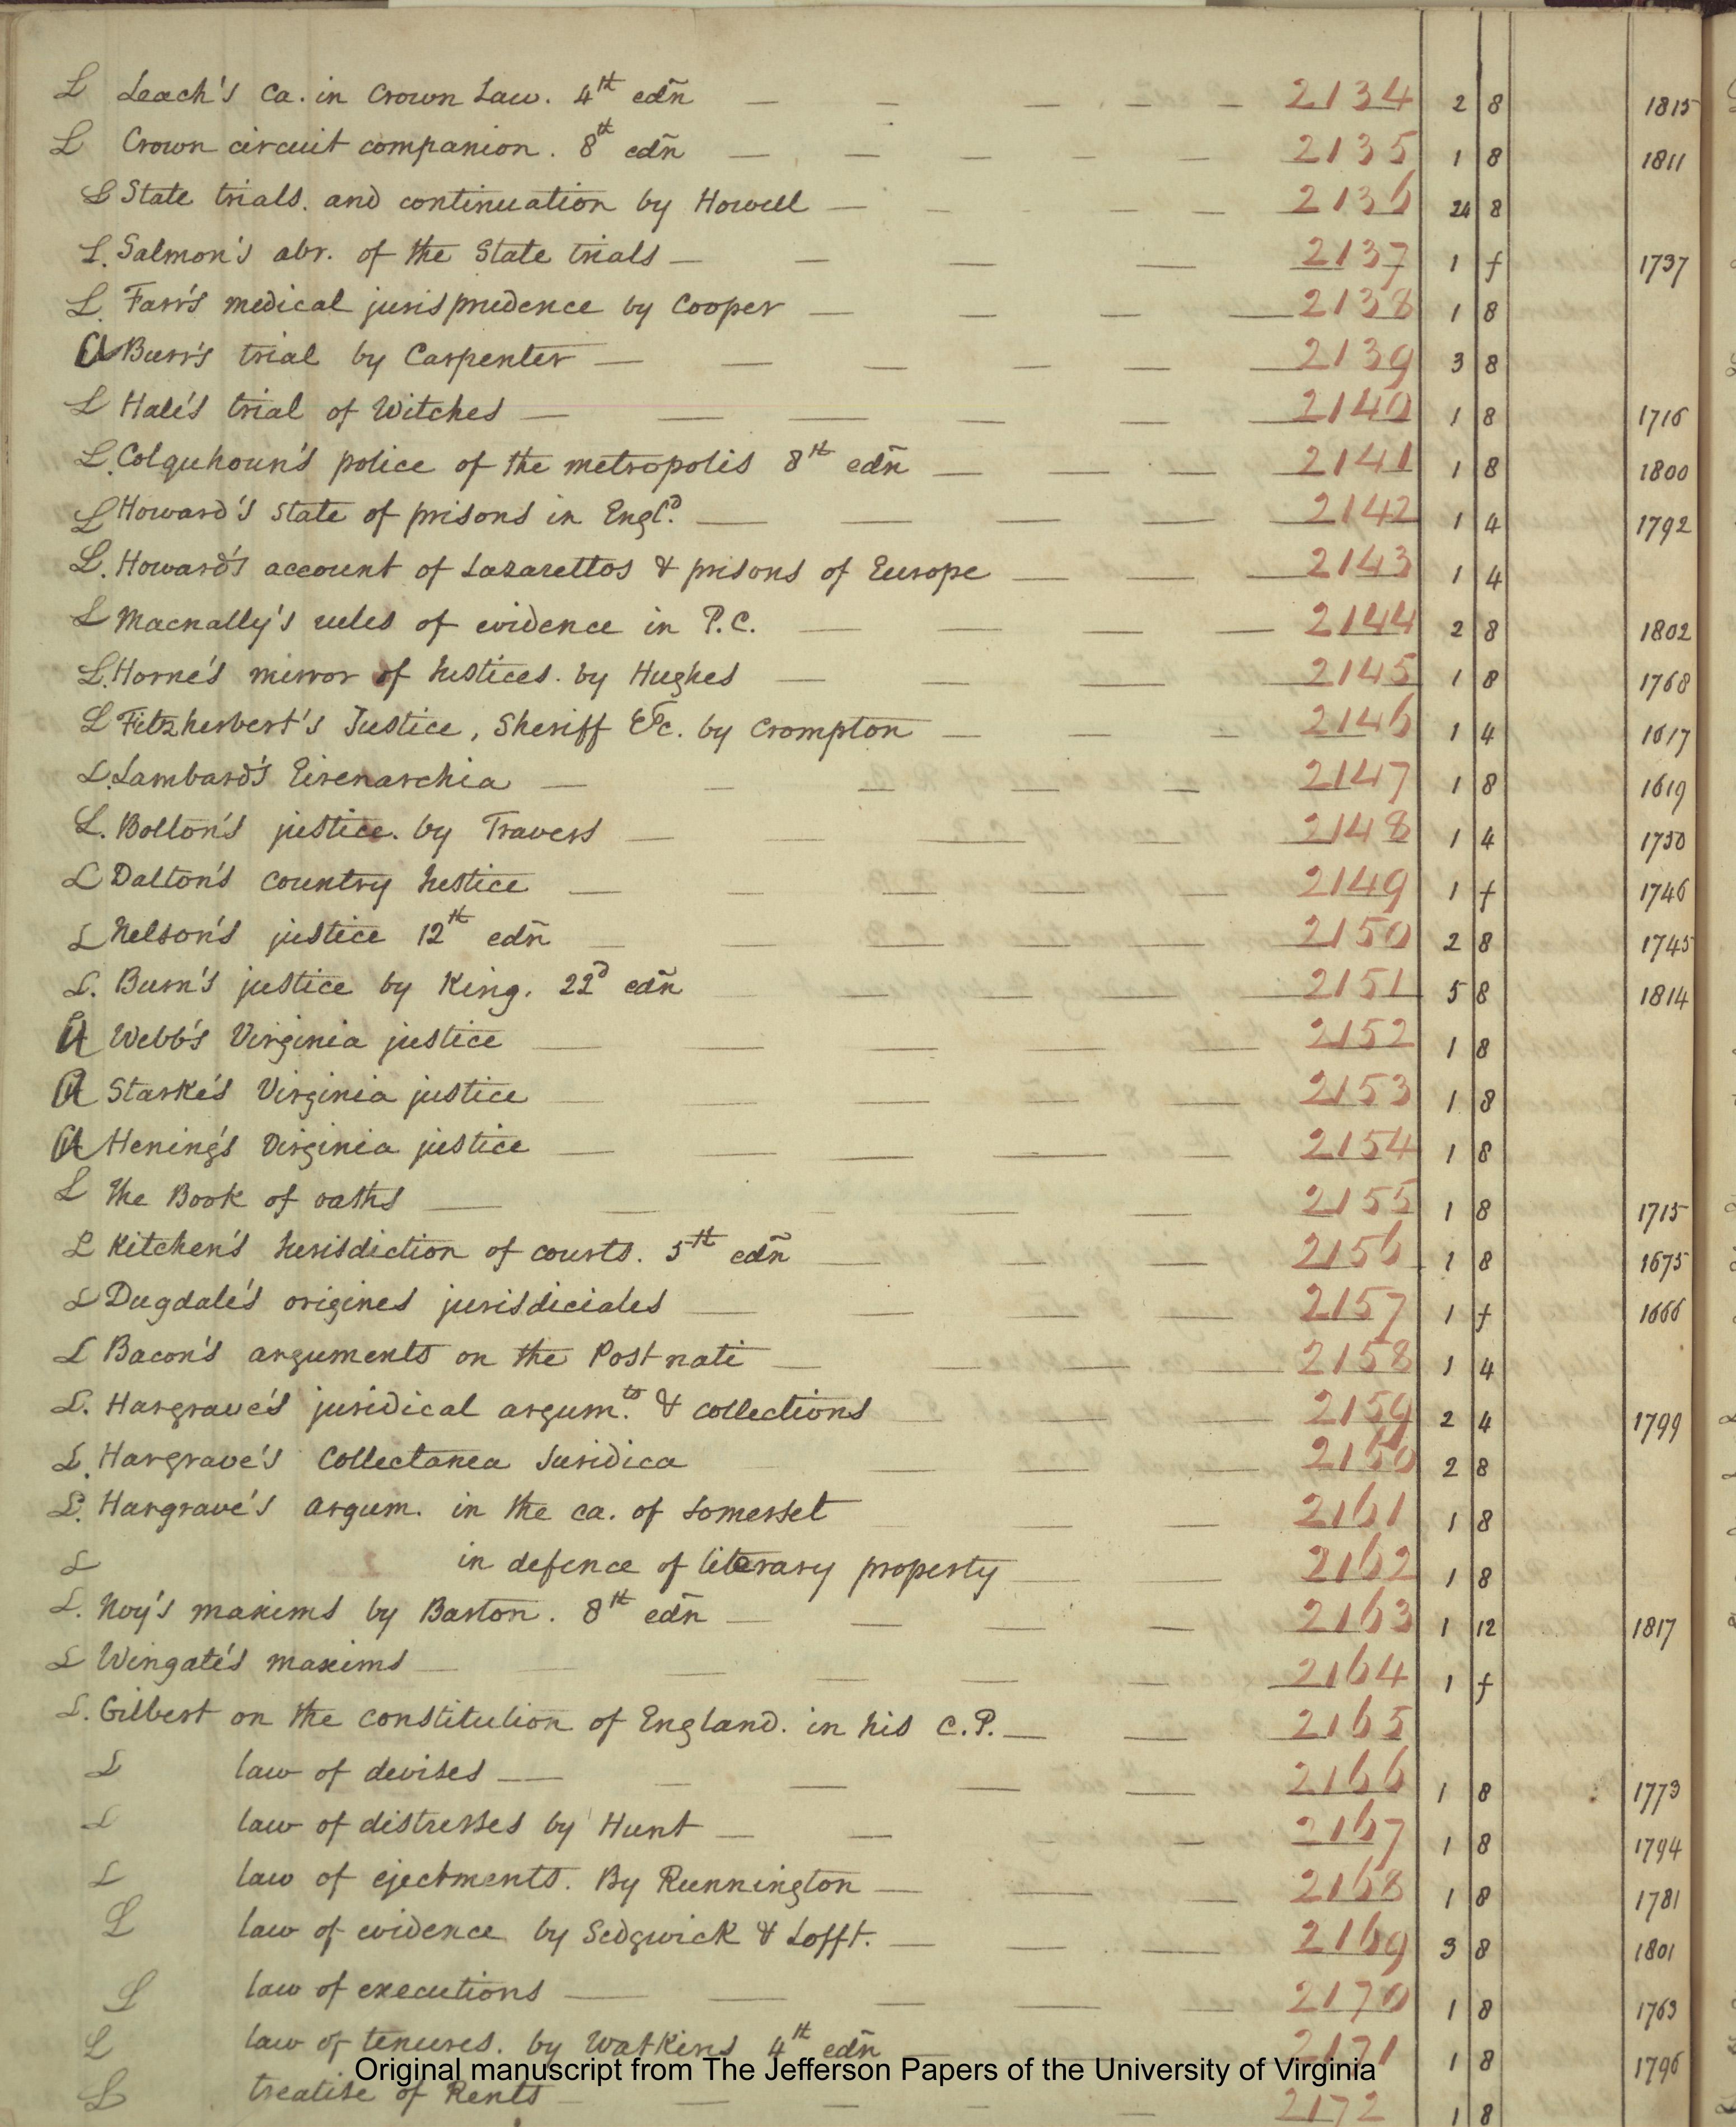 L Leach's Ca. in Crown Law. 4th edn̄ — — — — — 2134 2 8 1815
L Crown circuit companion. 8th edn̄ — — — — — 2135 1 8 1811
L State trials. and continuation by Howell — — — — — 2136 24 8
L. Salmon's abr. of the State trials — — — — 2137 1 f 1737
L. Farr's medical jurisprudence by Cooper — — — — 2138 1 8
A Burr's trial by Carpenter — — — — — 2139 3 8
L Hale's trial of Witches — — — — — 2140 1 8 1716
L. Colquhoun's police of the metropolis 8th edn̄ — — — 2141 1 8 1800
L Howard's state of prisons in Engld. — — — — 2142 1 4 1792
L. Howard's account of Lazarettos & prisons of Europe — — — 2143 1 4
L Macnally's rules of evidence in P.C. — — — — 2144 2 8 1802
L. Horne's mirror of Justices. by Hughes — — — — 2145 1 8 1768
L Fitzherbert's Justice, Sheriff &c. by Crompton — — — 2146 1 4 1617
L. Lambard's Eirenarchia — — — — — 2147 1 8 1619
L. Bolton's justice. by Travers — — — — — 2148 1 4 1730
L Dalton's country Justice — — — — — 2149 1 f 1746
L Nelson's justice 12th edn̄ — — — — — 2150 2 8 1745
L. Burn's justice by King. 22d edn̄ — — — — 2151 5 8 1814
A Webb's Virginia justice — — — — — 2152 1 8
A Starke's Virginia justice — — — — — 2153 1 8
A Hening's Virginia justice — — — — — 2154 1 8
L the Book of oaths — — — — — 2155 1 8 1715
L Kitchen's Jurisdiction of courts. 5th edn̄ — — — 2156 1 8 1675
L Dugdale's origines jurisdiciales — — — — 2157 1 f 1666
L Bacon's arguments on the Postnati — — — 2158 1 4
L. Hargrave's juridical argumts. & collections — — — 2159 2 4 1799
L. Hargrave's Collectanea Juridica — — — — 2160 2 8
L. Hargrave's argum. in the ca. of Somerset — — — 2161 1 8
L in defence of literary property — — 2162 1 8
L. Noy's maxims by Barton. 8th edn̄ — — — — 2163 1 12 1817
L Wingate's maxims — — — — — 2164 1 f
L. Gilbert on the constitution of England. in his C.P. — — 2165
L law of devises — — — — — 2166 1 8 1773
L law of distresses by Hunt — — — 2167 1 8 1794
L law of ejectments. By Runnington — — — 2168 1 8 1781
L law of evidence by Sedgwick & Lofft. — — — 2169 3 8 1801
L law of executions — — — — 2170 1 8 1763
L law of tenures. by Watkins 4th edn̄ — — 2171 1 8 1796
Original manuscript from The Jefferson Papers of the University of Virginia
L treatise of Rents — — — — 2172 1 8